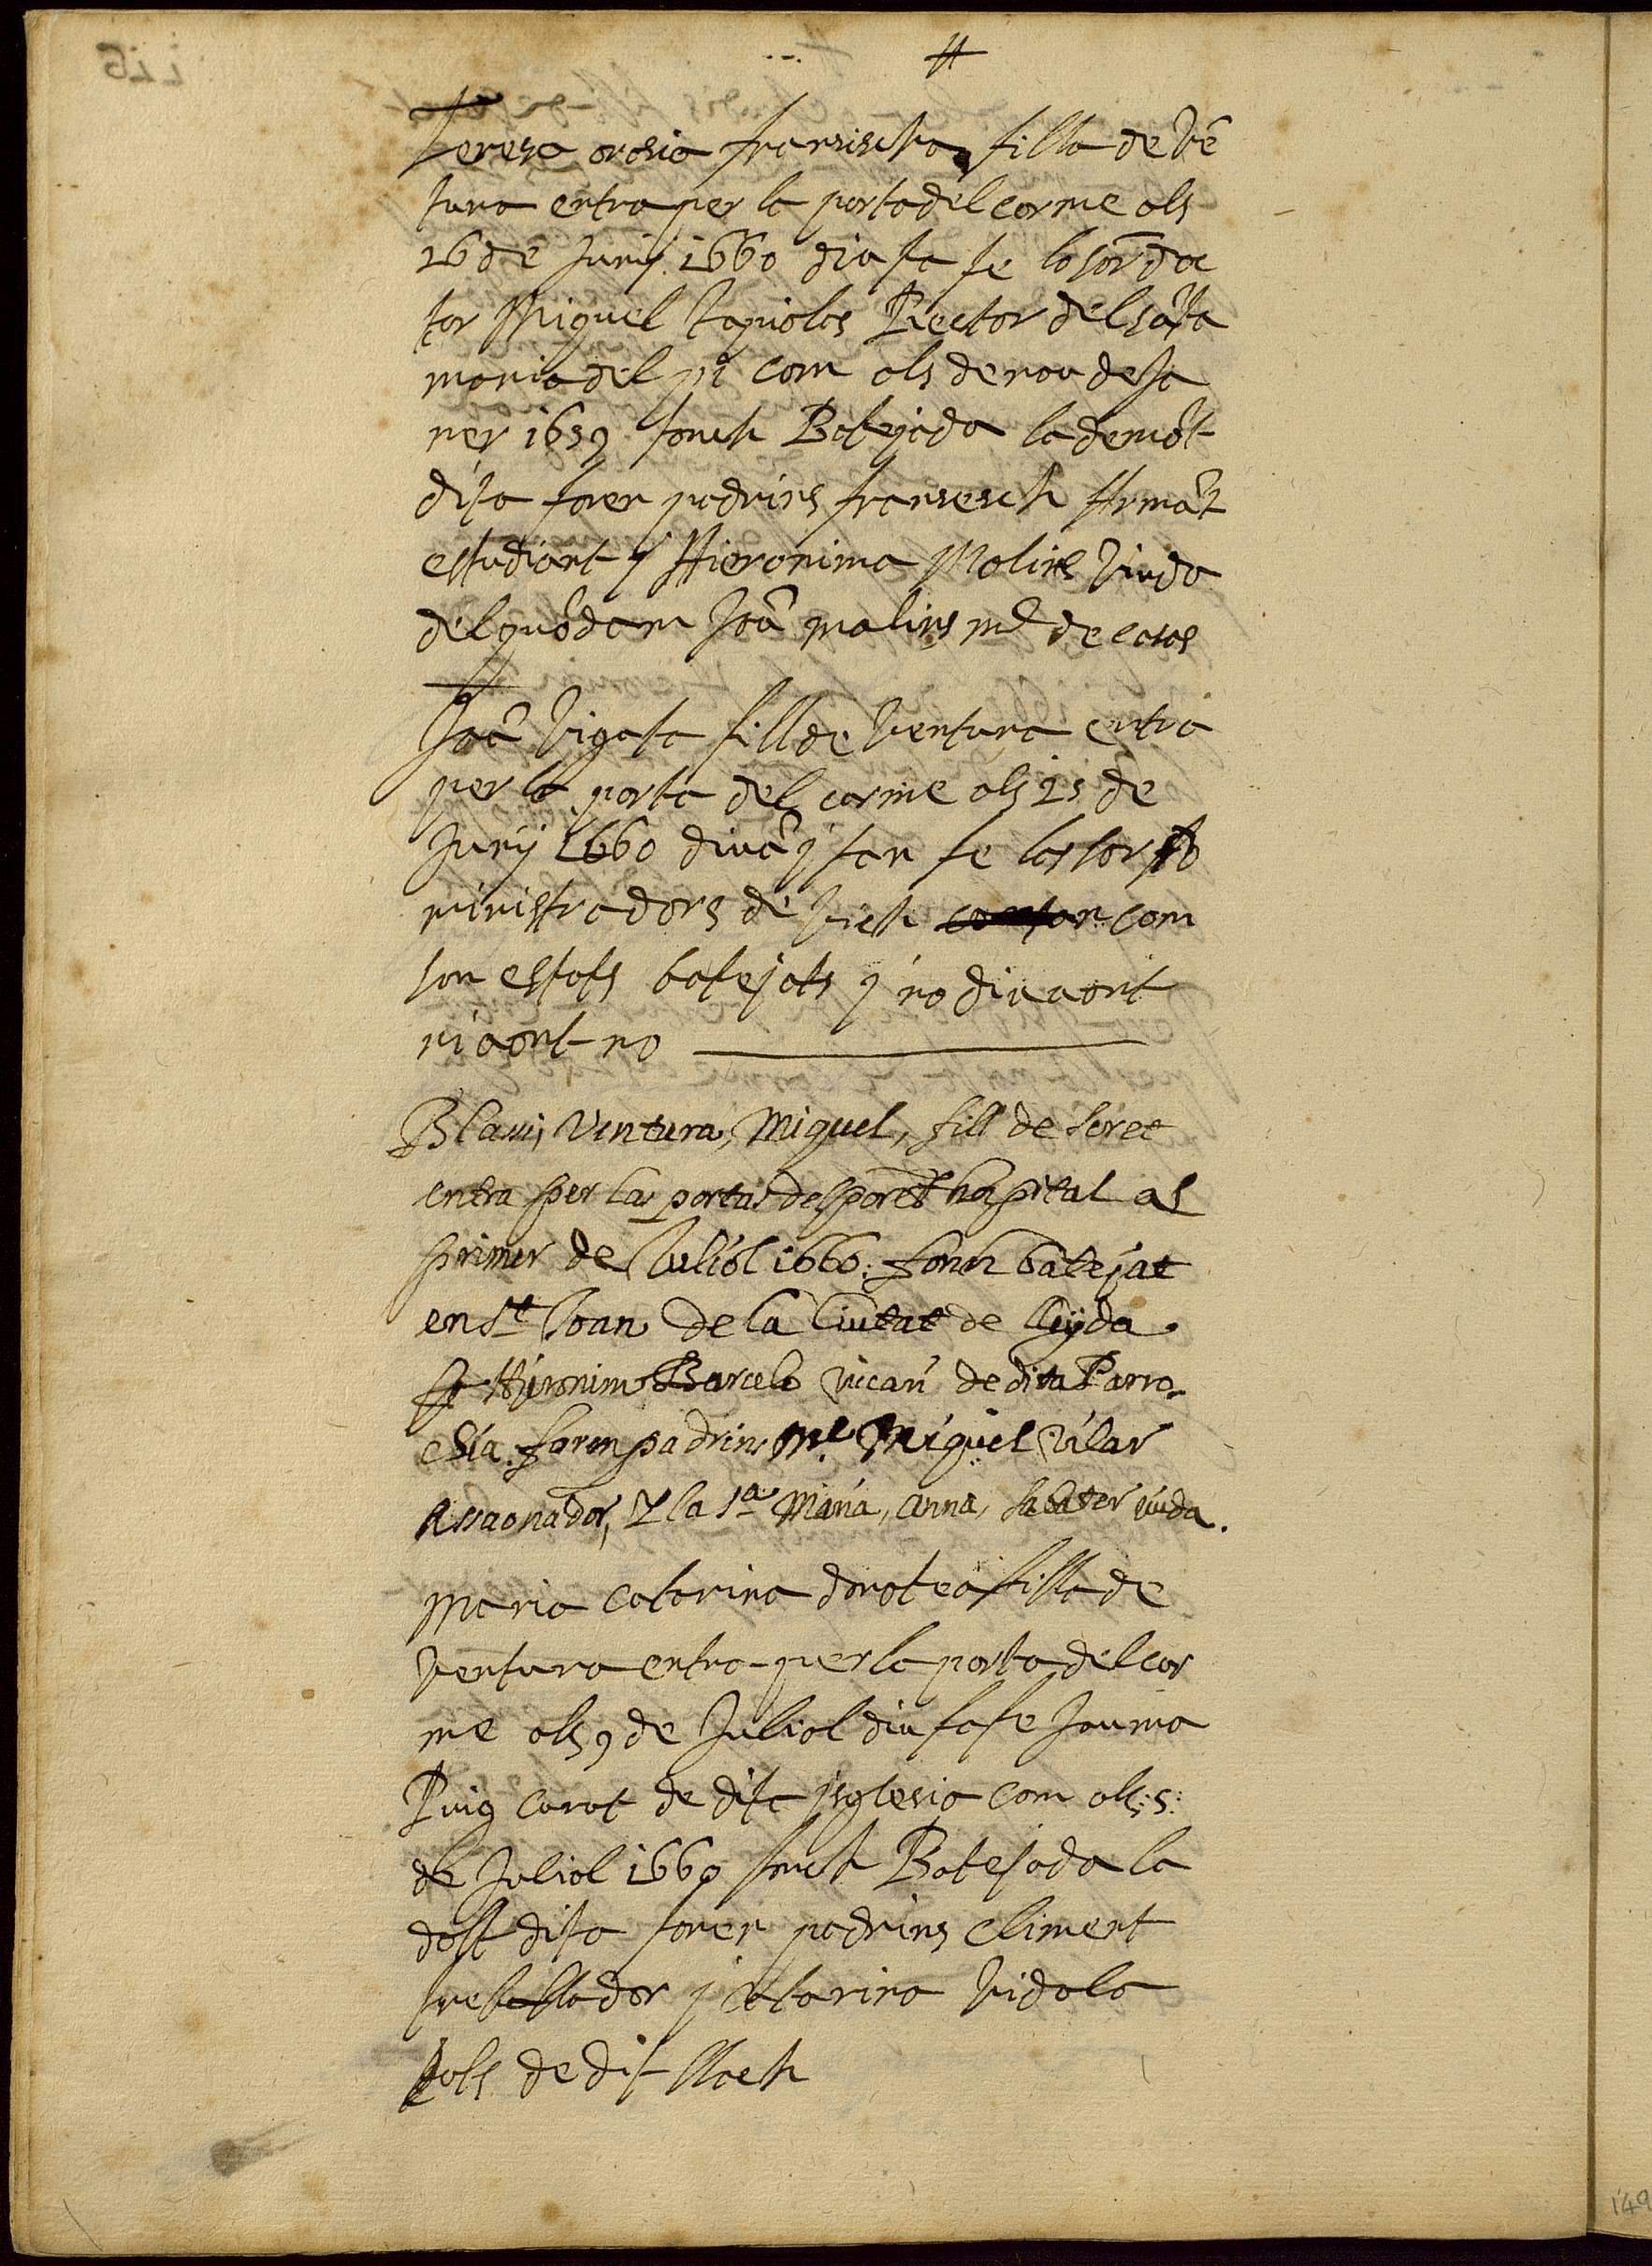 Teresa orosia fransischa filla de vē
tura entra per la porta del carme als
26 de Juny 1660 diu fa fe lo sor doc
tor Miquel Rector del sāta
maria del pi com als de nou de Ja
ner 1659 fonch Batejada la demōt
dita foren padrins fransesch Armāt
estudiant y Hieronima Molins viuda
del quōdam Joā malins md de casas
Joā Vigata fill de Ventura entra
per la porta del carme als 25 de
Juny 1660 diuā y fan fe los sors
ministradors de Vich com
son estats batejats y no diu aont
ni aont no
Blassi, Ventura, Miquel, fill de Seret
entra per las portas del pōt hospital al
primer de Juliol 1660. fonch batejat
en St Joan de la Ciutat de lleyda
Hieronim Barcelo vicari de dita Parro-
chia. foren padrins Ml Miquel Vilar
Assaonador, y la Sa Maria, Anna, Sabater viuda.
Maria Catarina dorotea filla de
ventura entra per la porta del car
me als 9 de Juliol diu fa fe Jauma
Puig curat de dita jsglesia com als: 5:
de Juliol 1660 fonch Batejada la
dalt dita foren padrins Climent
treballador y Catarina Vidala
tots de dit lloch